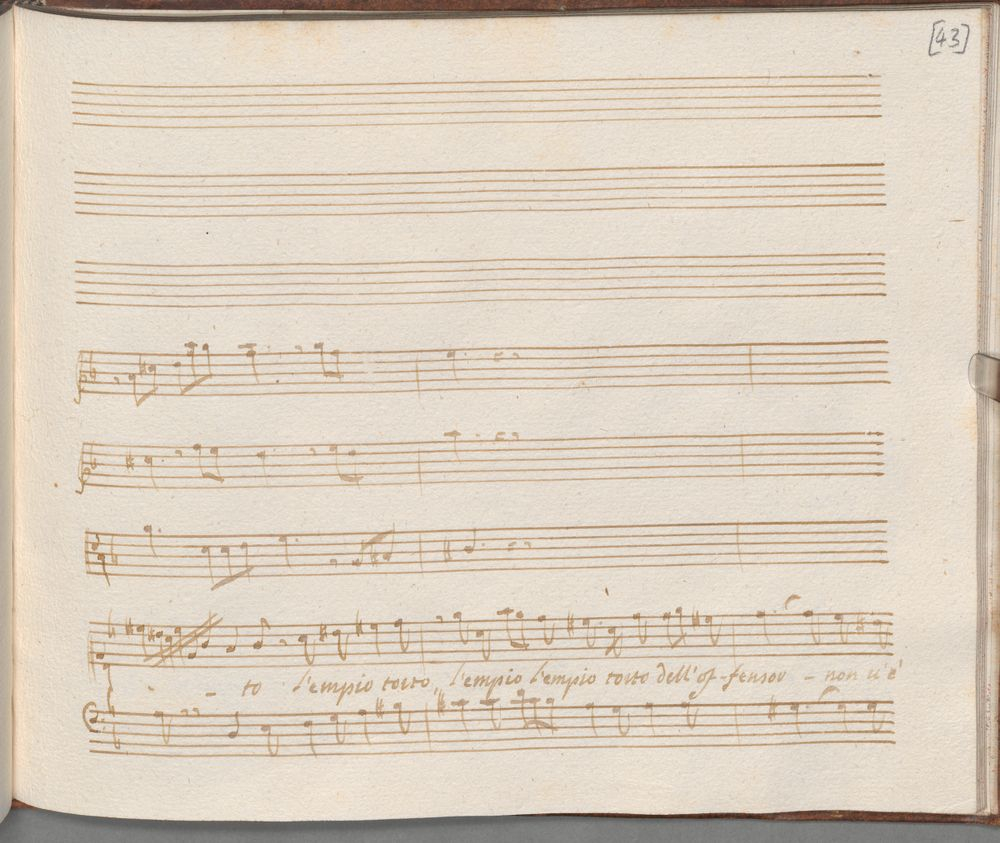 [43]
- to l'empio torto l'empio l'empio torto dell'of-fensor - non u'è